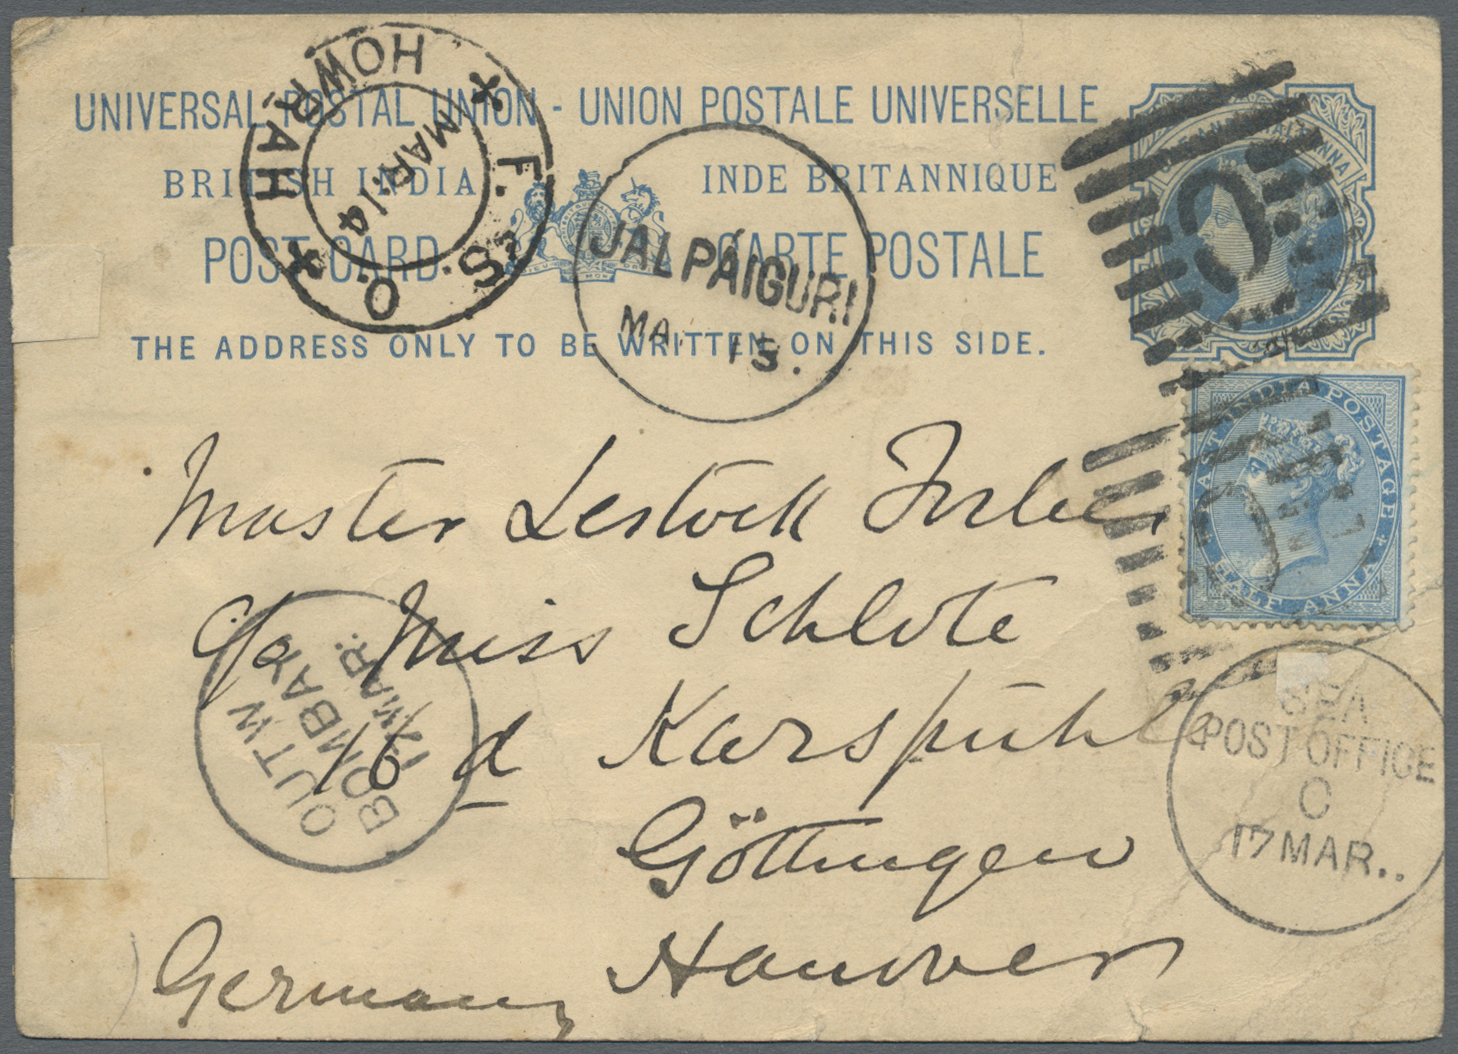 UNIVERSAL POSTAL UNION - UNION POSTALE UNIVERSELLE
BRITISH INDIA INDE BRITANNIQUE
POST CARD CARTE POSTALE
THE ADDRESS ONLY TO BE WRITTEN ON THIS SIDE.
HOWRAH
F. S. O.
MAR/14
JALPÁIGURI
MA. 13.
C
INDIA POSTAGE
HALF ANNA
Master Lestock
c/o Miss Schlote
16 d Karspühle
Göttingen
Hanover
Germany
OUTW
BOMBAY
17 MAR.
SEA
POST OFFICE
C
17 MAR..